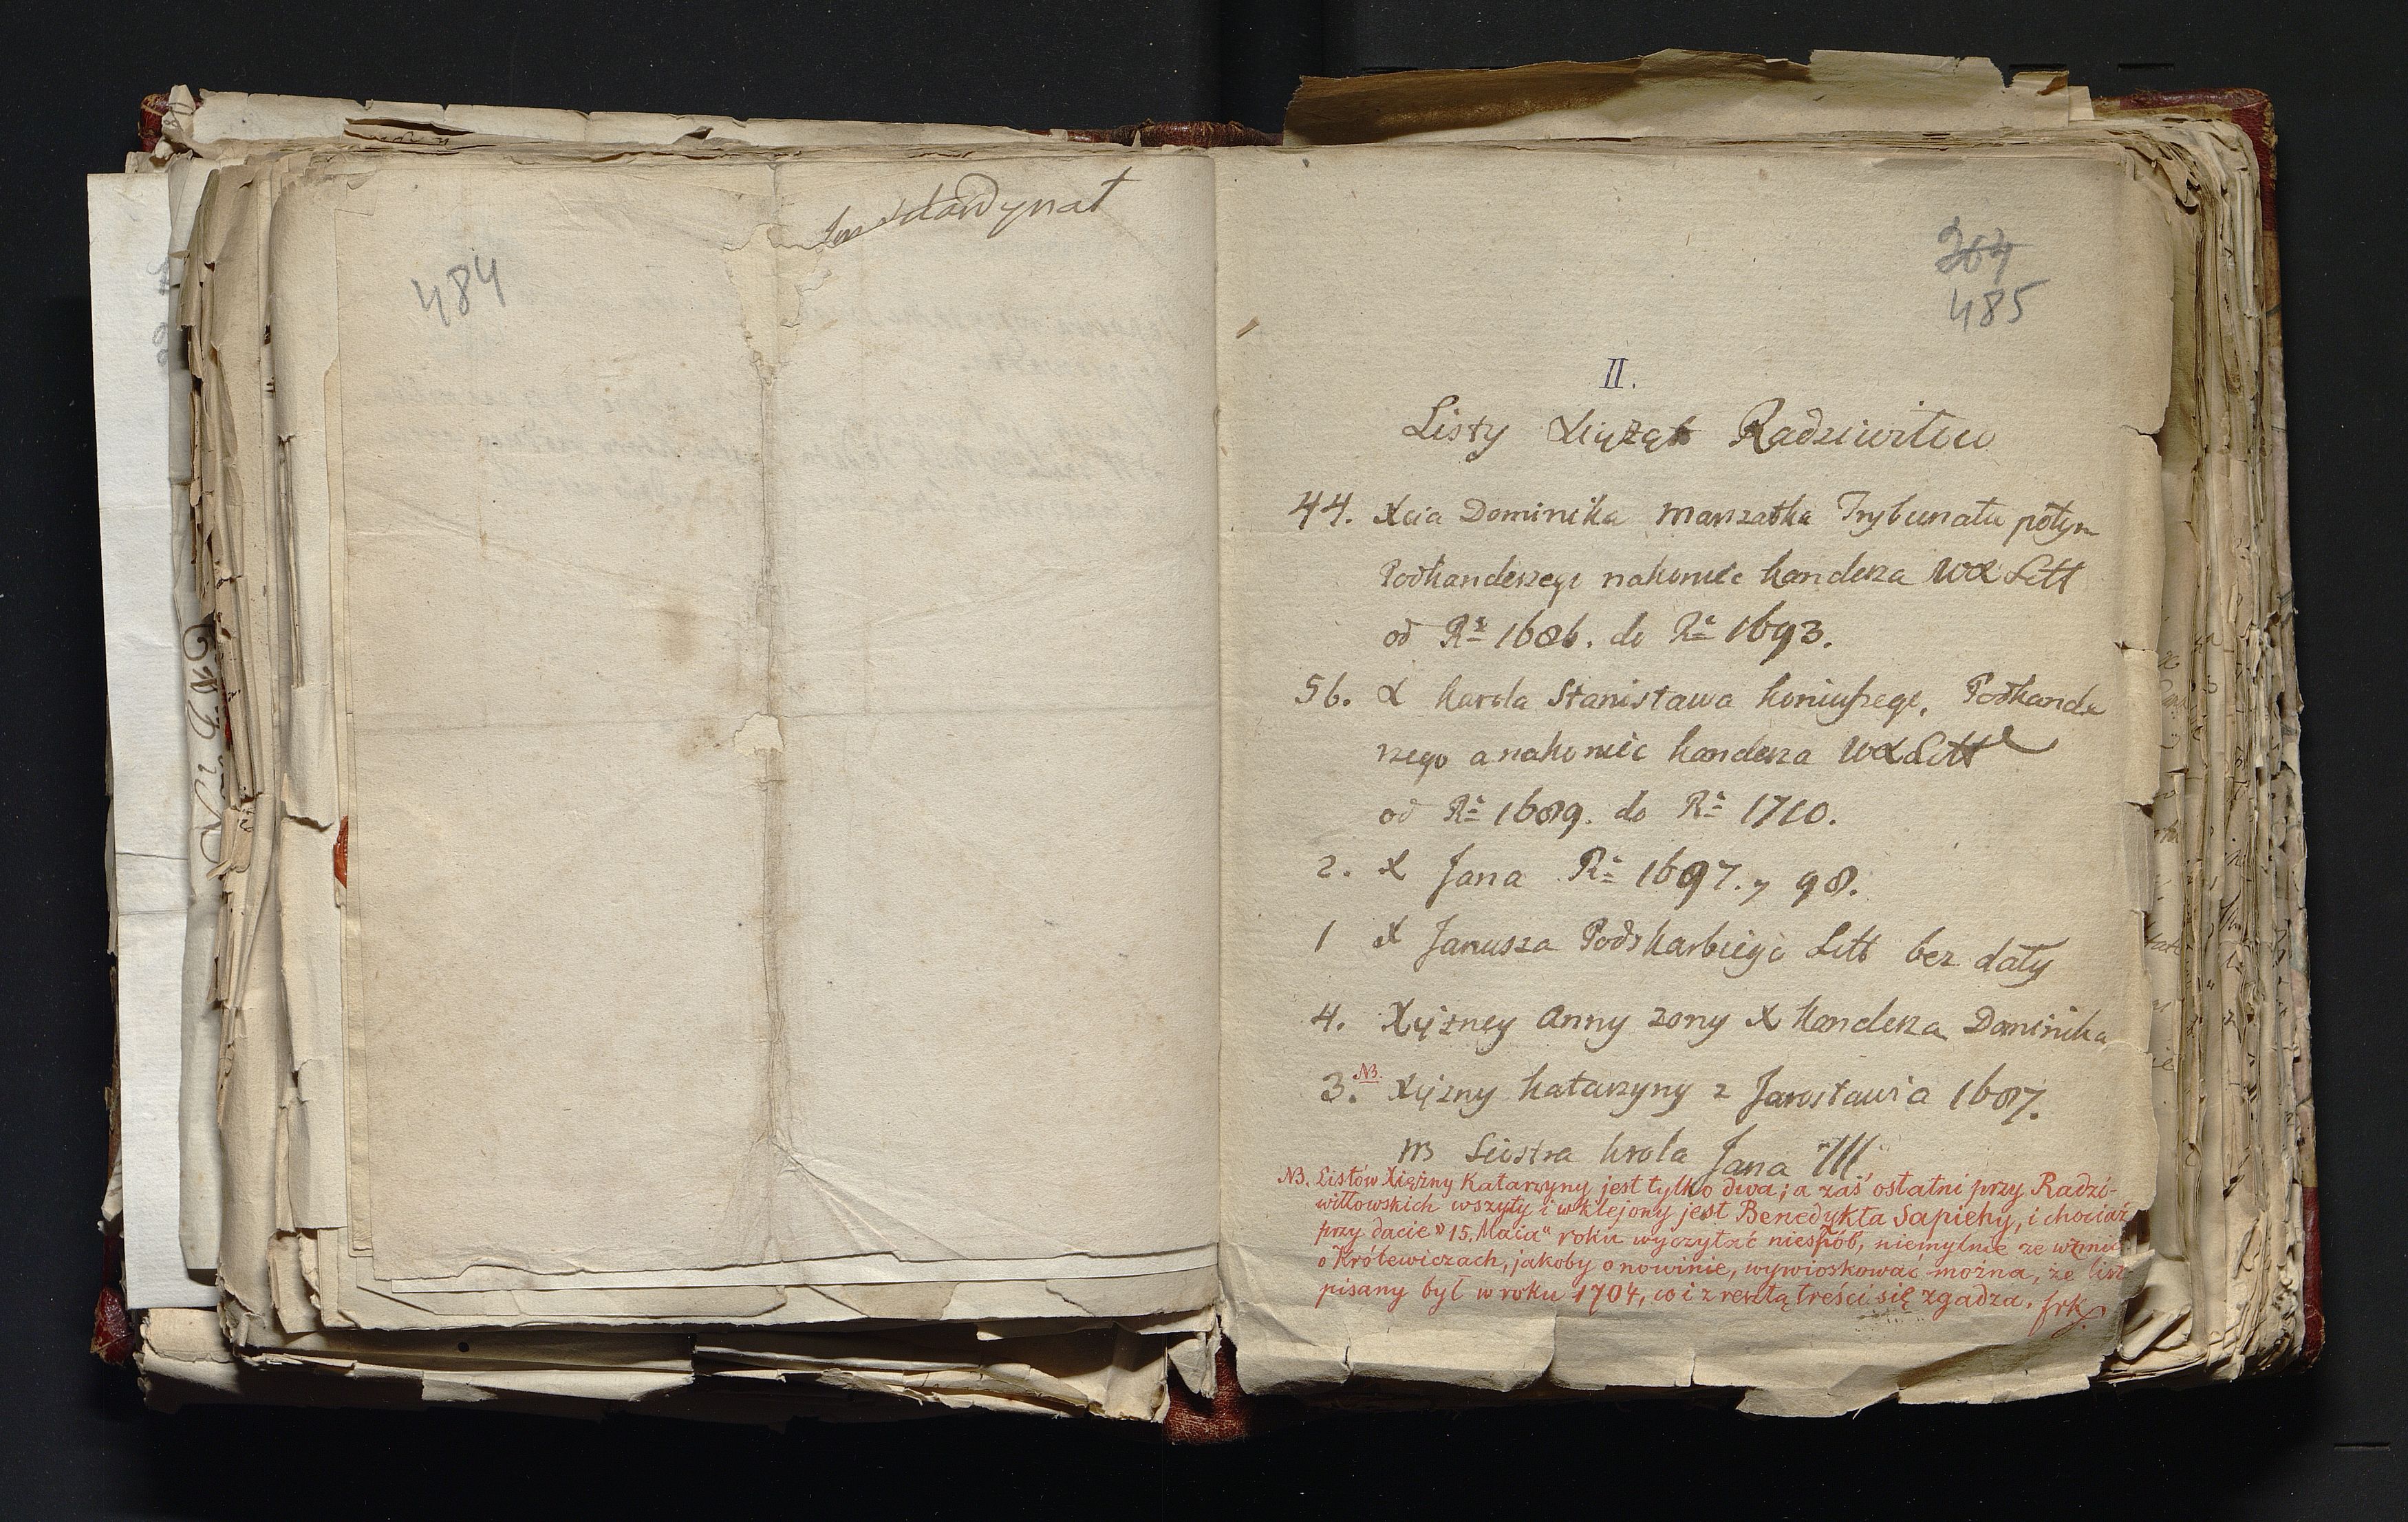 484
Kardynał
264
485
II.
Listy Xiążąt Radziwiłow
44. Xcia Dominika Marszałka Trybunału potym
Podkanclerzego nakoniec kanclerza WX Litt
od Rᵘ 1686. do Rᵘ 1693.
56. X Karola Stanisława koniuszego, Podkancle
rzego a nakoniec kanclerza WX Litt
od Rᵘ 1689. do Rᵘ 1710.
2. X Jana Rᵘ 1697. y 98.
1 X Janusza Podskarbiego Litt bez daty
4. Xiężney Anny zony X kanclerza Dominika
3. NB. Xiężny Katarzyny z Jarosławia 1687.
NB Siostra krola Jana III
NB. Listów Xiężny Katarzyny jest tylko dwa; a zaś ostatni przy Radzi-
wiłłowskich wszyty i wklejony jest Benedykta Sapiehy, i chociaż
przy dacie "15. Maia" roku wyczytać niespób, niemylnie ze wzmia
o Królewiczach, jakoby o nowinie, wywioskować można, że list
pisany był w roku 1704, co i z resztą treści się zgadza. frk